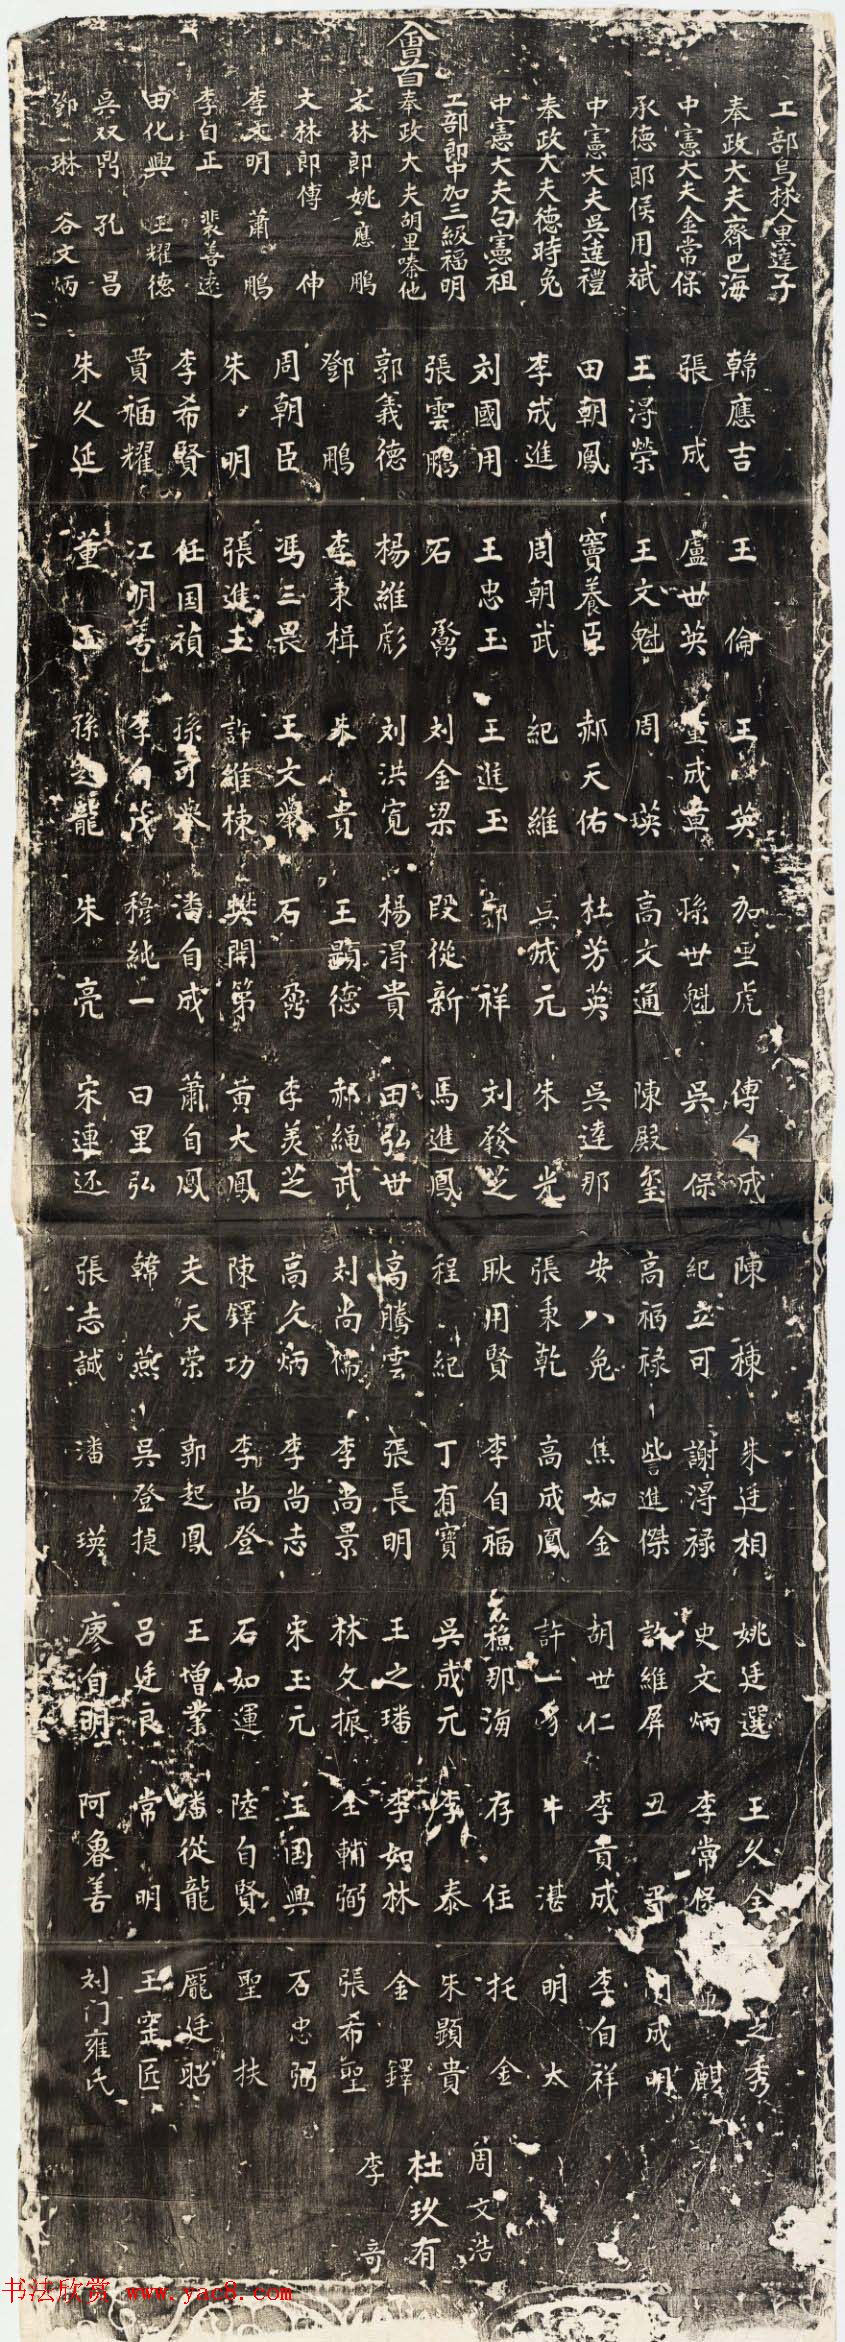 會首
工部烏林人黑達子
奉政大夫齊巴海
中憲大夫金常保
承德郎侯用斌
中憲大夫吳達禮
奉政大夫德時兔
中憲大夫白憲祖
工部郎中加三級福明
奉政大夫胡里嗪他
文林郎姚應鵬
文林郎傅伸
李文明 蕭鵬
李自正 裴善遠
田化興 王耀德
吳双 孔昌
鄧一琳 谷文炳
韓應吉 張成 王淂榮 田朝鳳 李成進 刘國用 張雲鵬 郭義德 鄧鵬 周朝臣 朱明 李希賢 賈福耀 朱久延
王倫 盧世英 王文魁 竇養臣 周朝武 王忠玉 石奇 楊維彪 李秉楫 馮三畏 張進玉 任国禎 江明善 董玉
王英 董成章 周瑛 郝天佑 紀維 王進玉 刘金梁 刘洪寬 朱貴 王文舉 許維棟 孫可舉 李茂 孫龍
加里虎 孫世魁 高文通 杜芳英 吳成元 郭祥 段從新 楊淂貴 王顯德 石奇 樊開第 潘自成 穆純一 朱亮
傅成 吳保 陳殿璽 吳達那 朱光 刘發芝 馬進鳳 田弘世 郝繩武 李美芝 黃大鳳 蕭自鳳 日里弘 宋連还
陳棟 紀立可 高福祿 安八兔 張秉乾 耿用賢 程紀 高騰雲 刘尚儒 高久炳 陳鐸功 夫天荣 韓燕 張志誠
朱廷相 謝淂祿 訾進傑 焦如金 高成鳳 李自福 丁有寶 張長明 李尚景 李尚志 李尚登 郭起鳳 吳登捷 潘瑛
姚廷選 史文炳 許維屏 胡世仁 許一 穐那海 吳成元 王之璠 林文振 宋玉元 石如運 王增業 吕廷良 廖自明
王久全 李常保 丑哥 李貢成 牛湛 存住 李泰 李如林 全輔弼 王国興 陸自賢 潘從龍 常明 阿魯善
之秀 麒 成明 李自祥 明太 托金 朱顕貴 金鐸 張希聖 石忠弼 聖扶 龐廷昭 王窑匠 刘门雍氏
周文浩
杜玖有
李奇
书法欣赏 www.yac8.com